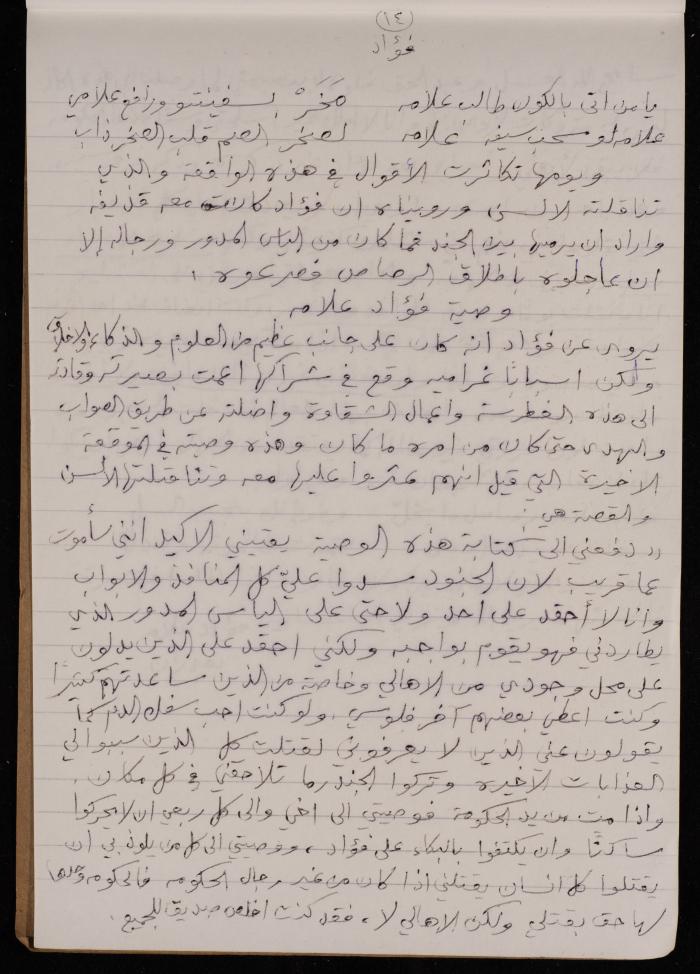 ١٤
فؤاد
يا من اتى بالكون طالب علامه مَخَرْ بسفينتو ورافع علامي
علامه لو سحب سيفه علامه لصخر الصم قلب الصخر ذاب
ويومها تكاثرت الأقوال في هذه الواقعة والذي
تناقلته الالسن ورويناه ان فؤاد كانت معه قذيفه
واراد ان يرميها بين الجند فما كان من الياس المدور ورجاله إلا
ان عاجلوه باطلاق الرصاص فصرعوه
وصية فؤاد علامه
يروى عن فؤاد انه كان على جانب عظيم من العلوم والذكاء والاخلاق
ولكن اسبابًا غراميه وقع في شراكها اعمت بصيرته وقادته
الى هذه الغطرسة واعمال الشقاوة واضلته عن طريق الصواب
والهدى حتى كان من امره ما كان وهذه وصيته في الموقعة
الاخيرة التي قيل انهم عثروا عليها معه وتناقلتها الألسن
والقصة هي:
"دفعني الى كتابة هذه الوصية يقيني الاكيد انني سأموت
عما قريب لان الجنود سدوا عليّ كل المنافذ والابواب
وانا لا أحقد على احد ولا حتى على الياس المدور الذي
يطاردني فهو يقوم بواجبه ولكني احقد على الذين يدلون
على محل وجودي من الاهالي وخاصة من الذين ساعدتهم كثيرًا
وكنت اعطي بعضهم آخر فلوسي. ولو كنت احب سفك الدم كما
يقولون عني الذين لا يعرفوني لقتلت كل الذين سببوا لي
العذابات الأخيره وتركوا الجندرما تلاحقني في كل مكان.
واذا مت من يد الحكومة فوصيتي الى اخي والى كل ربعي ان لا يحركوا
ساكنًا وان يكتفوا بالبكاء على فؤاد، ووصيتي الى كل من يلوذ بي ان
يقتلوا كل انسان يقتلني اذا كان من غير رجال الحكومه فالحكومه وحدها
لها حق بقتلي ولكن الاهالي لا، فقد كنت اخلص صديق للجميع.